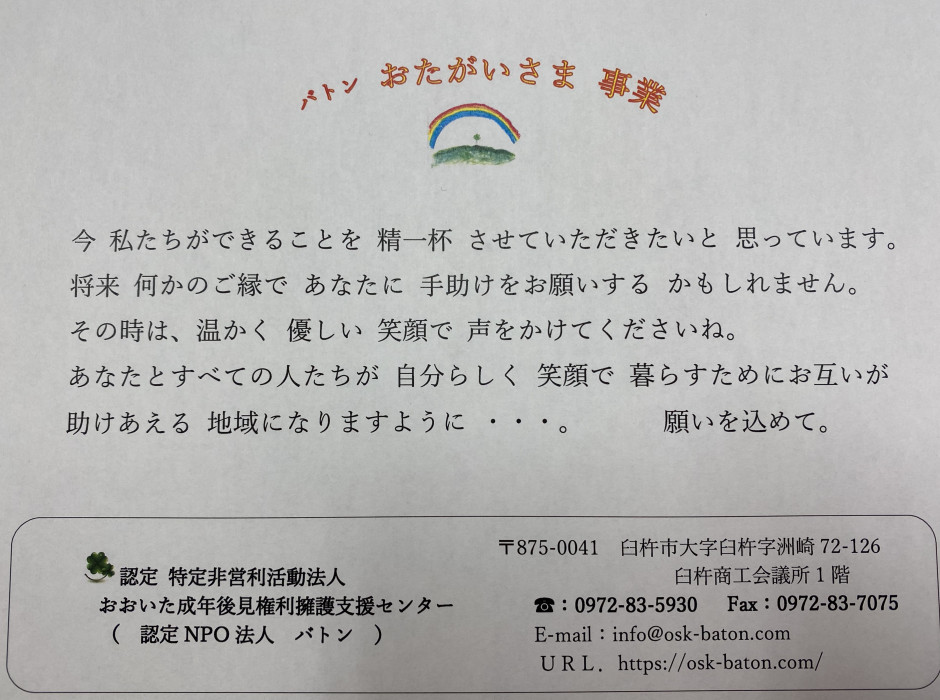 バトン おたがいさま 事業
今 私たちができることを 精一杯 させていただきたいと 思っています。
将来 何かのご縁で あなたに 手助けをお願いする かもしれません。
その時は、温かく 優しい 笑顔で 声をかけてくださいね。
あなたとすべての人たちが 自分らしく 笑顔で 暮らすためにお互いが
助けあえる 地域になりますように ・・・。 願いを込めて。
認定 特定非営利活動法人
おおいた成年後見権利擁護支援センター
( 認定 NPO 法人 バトン )
〒875-0041 臼杵市大字臼杵字洲崎 72-126
臼杵商工会議所 1 階
☎:0972-83-5930 Fax:0972-83-7075
E-mail:info@osk-baton.com
ＵＲＬ．https://osk-baton.com/